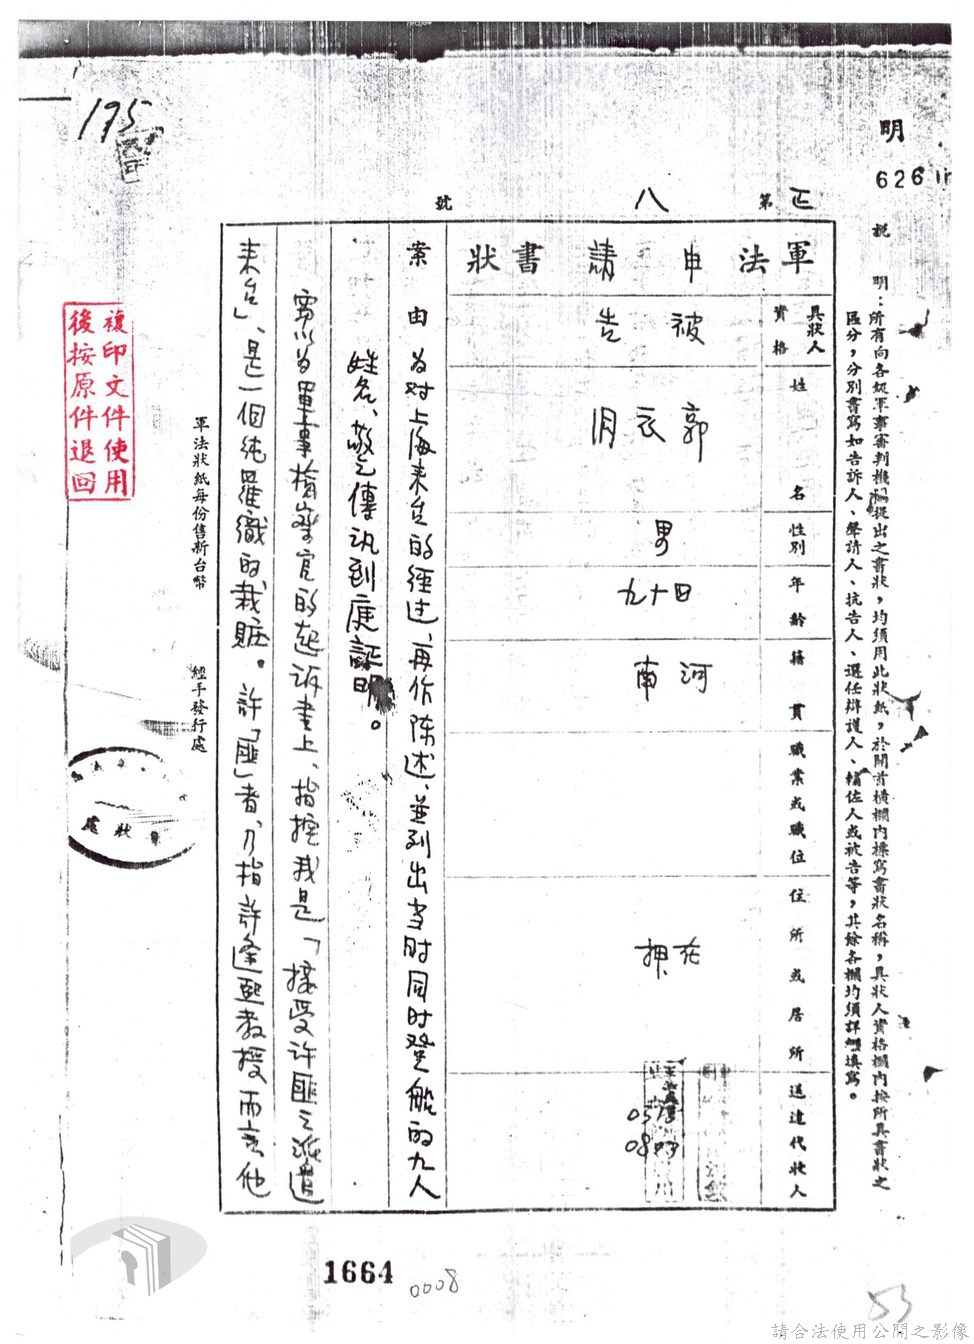 195
明
626
正
第 八 號
說明：所有向各級軍事審判機關提出之書狀，均須用此狀紙，於開首橫欄內標寫書狀名稱，具狀人資格欄內按所具書狀之
區分，分別書寫如告訴人、聲請人、抗告人、選任辯護人、輔佐人或被告等，其餘各欄均須詳細填寫。
軍法申請書狀
具狀人
資格 被告
姓名 郭衣洞
性別 男
年齡 四十九
籍貫 河南
職業或職位
住所或居所 在押
送達代狀人
案由 為对上海来台的经过、再作陈述、並列出当时同时登船的九人
姓名、敬乞傳訊到庭証明。
竊以為軍事檢察官的起訴書上、指控我是「接受许匪之派遣
来台」、是一個純羅織的栽賍。許「匪」者、乃指許逢熙教授而言、他
軍法狀紙每份售新台幣 經手發行處
狀處
複印文件使用
後按原件退回
1664
0008
53
請合法使用公開之影像